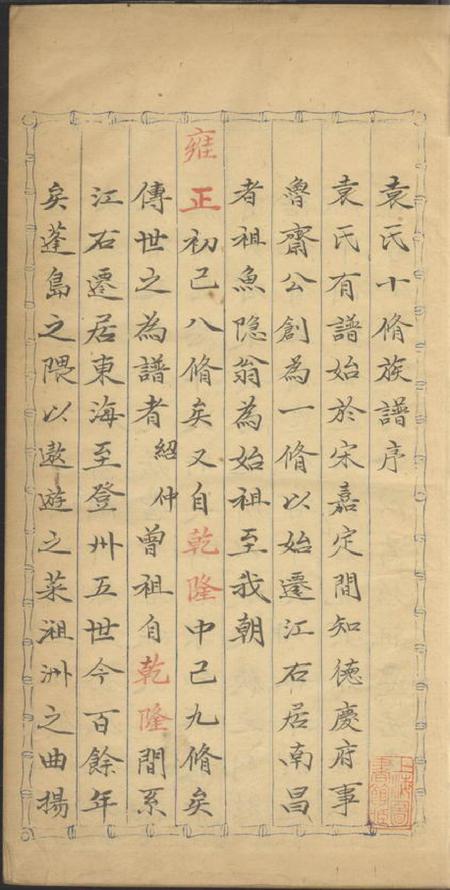 袁氏十脩族譜序
袁氏有譜始於宋嘉定間知德慶府事
魯齋公創為一脩以始遷江右居南昌
者祖魚隐翁為始祖至我朝
雍正初已八脩矣又自乾隆中已九脩矣
傳世之為譜者紹仲曾祖自乾隆間系
江右遷居東海至登州五世今百餘年
矣蓬島之隈以遨遊之萊沮洲之曲揚
上海圖書館藏